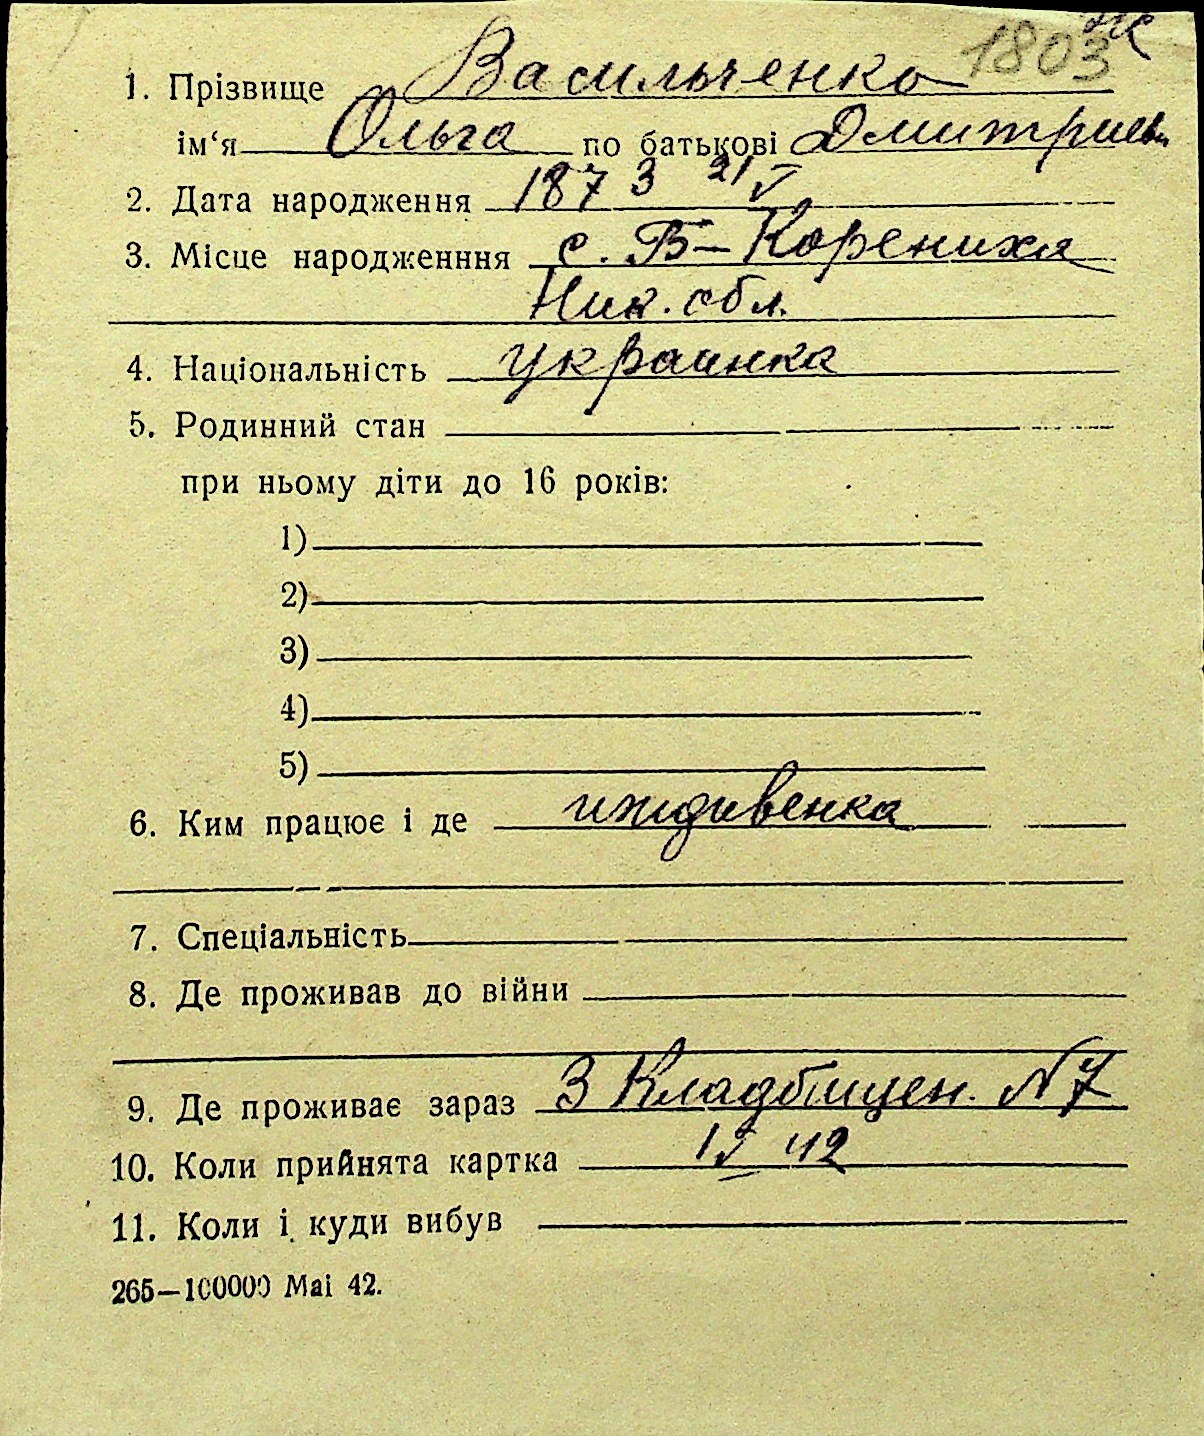 1803
1. Прізвище Васильченко
ім‘я Ольга по батькові Дмитриев
2. Дата народження 1873 21/V
3. Місце народженння с. В-Корениха
Ник. обл.
4. Національність украинка
5. Родинний стан
при ньому діти до 16 років:
1)
2)
3)
4)
5)
6. Ким працює і де иждивенка
7. Спеціальність
8. Де проживав до війни
9. Де проживає зараз 3 Кладбищен. N 7
10. Коли прийнята картка 42
11. Коли і куди вибув
265—100000 Mai 42.